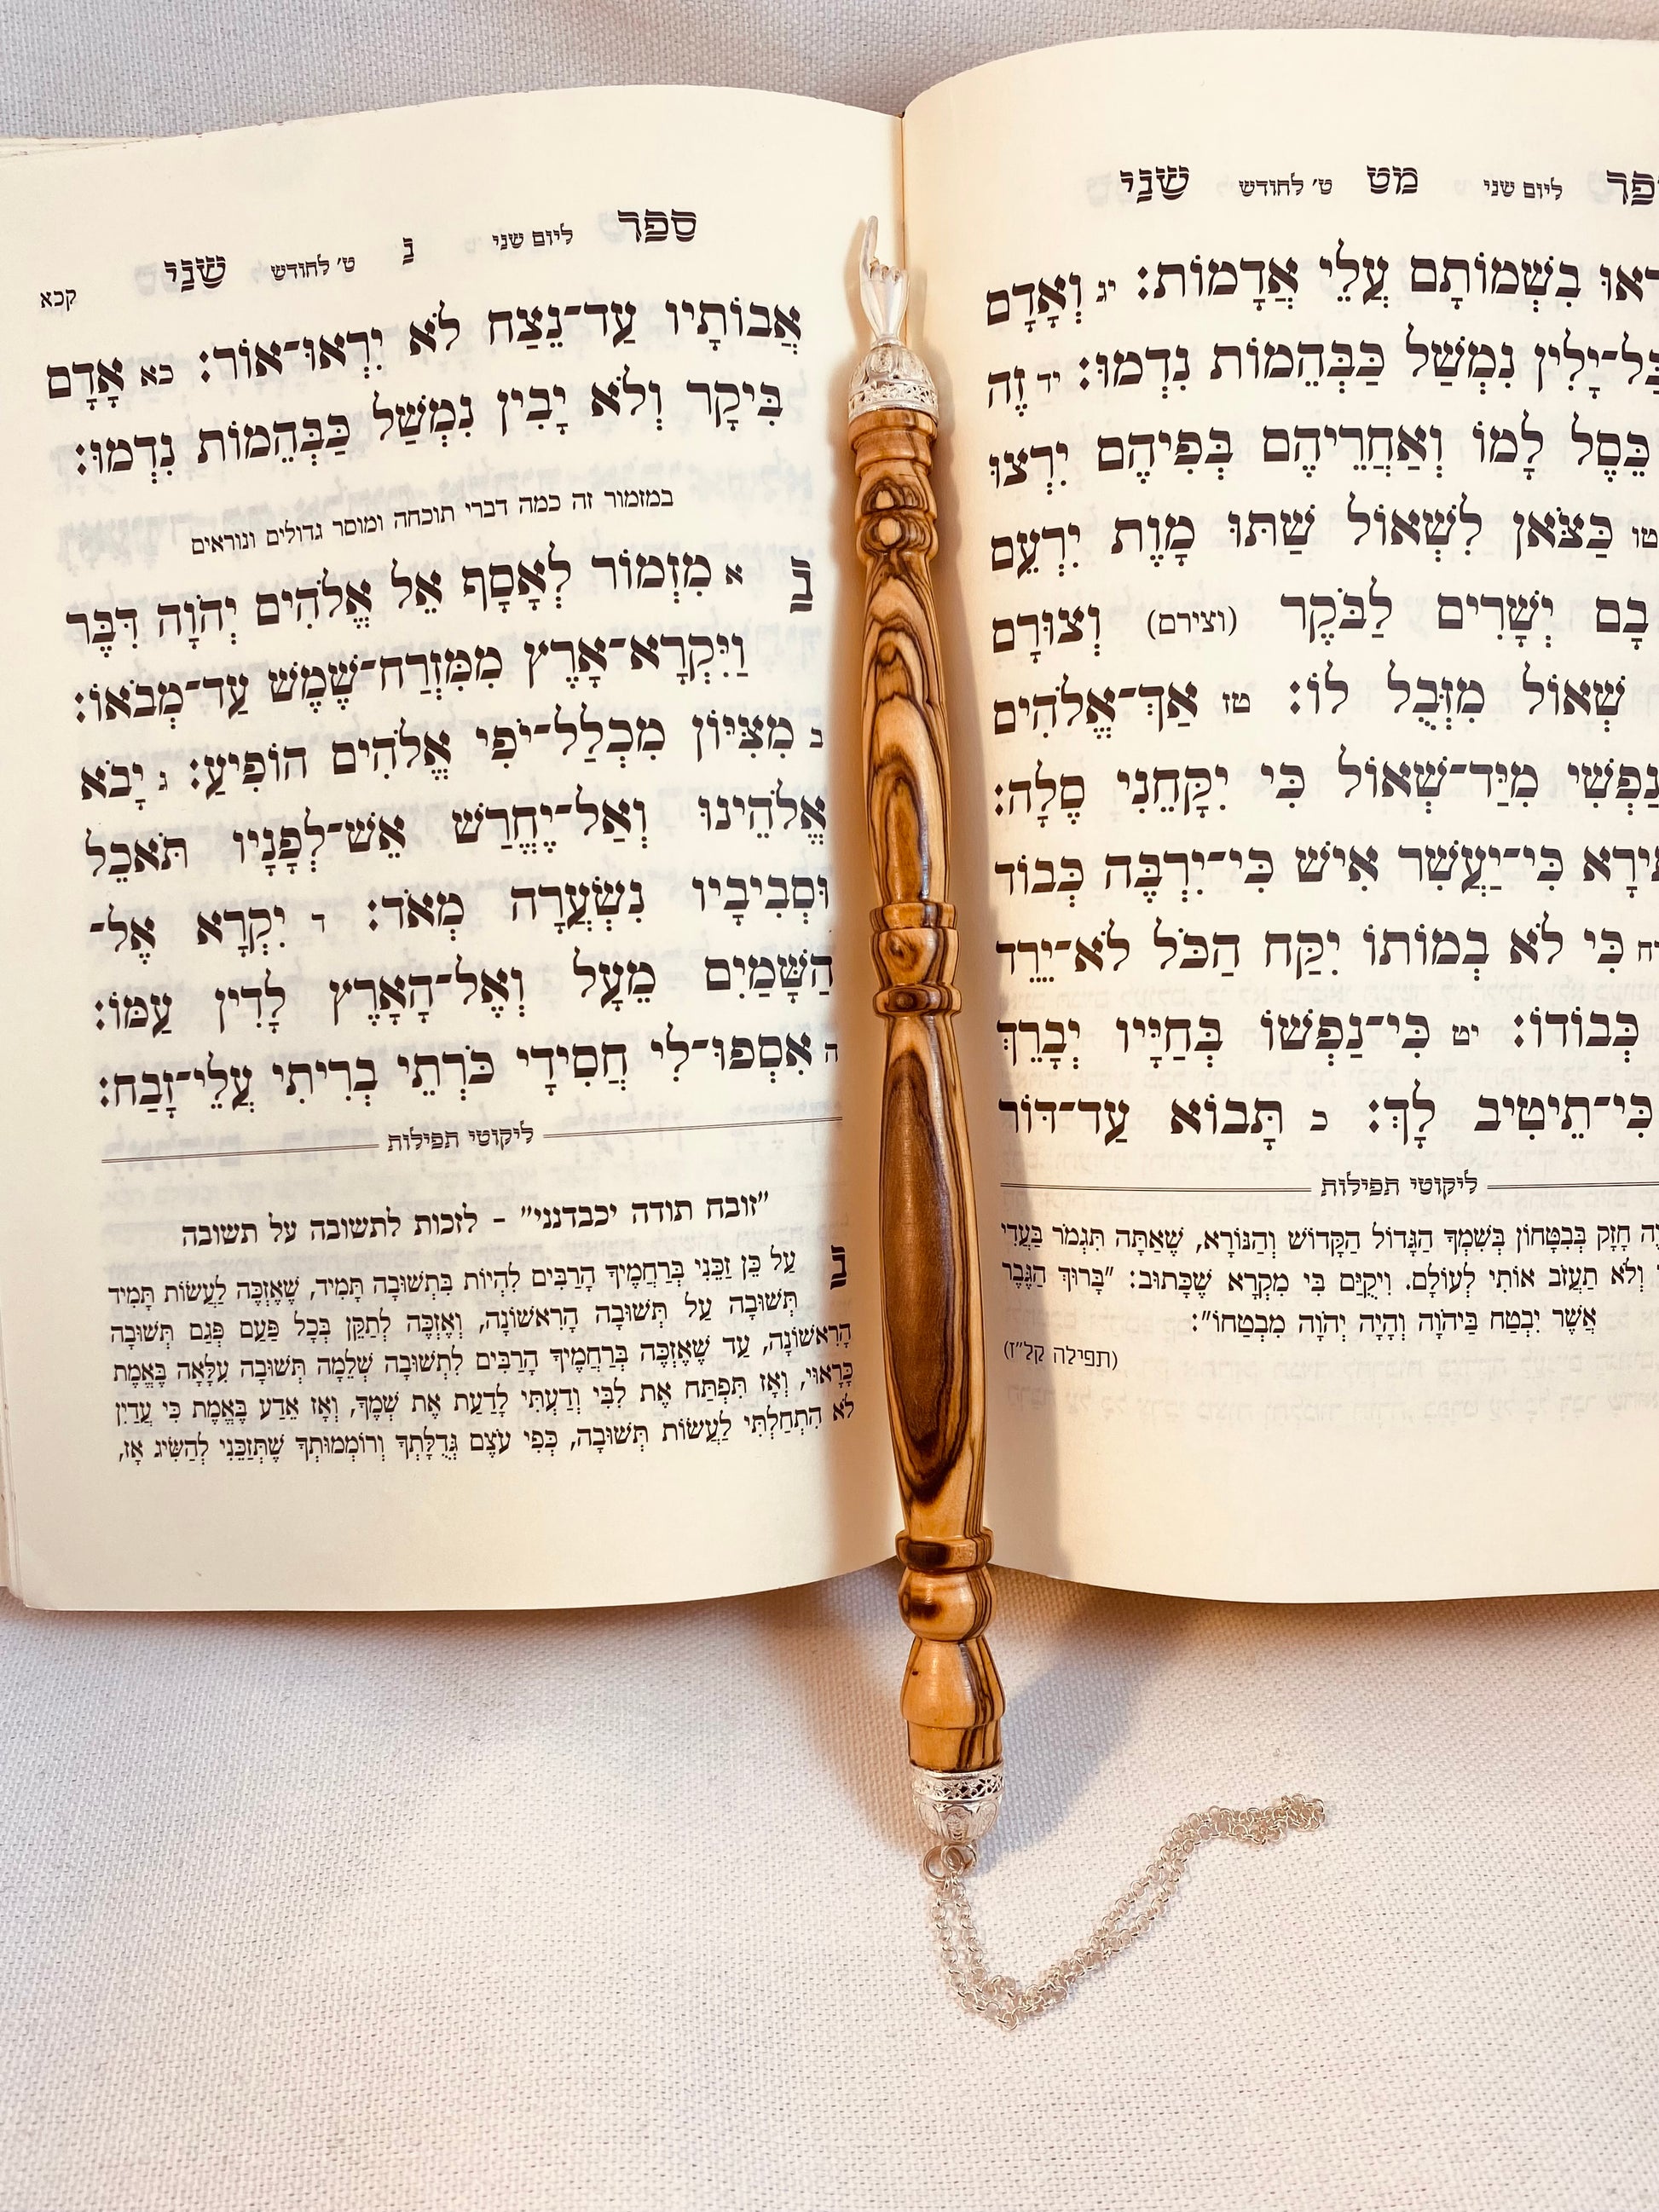 ליום שני מט ט׳ לחודש שני
בִשְׁמוֹתָם עֲלֵי אֲדָמוֹת: יג וְאָדָם
בַּל־יָלִין נִמְשַׁל כַּבְּהֵמוֹת נִדְמוּ: יד זֶה
כֵּסֶל לָמוֹ וְאַחֲרֵיהֶם בְּפִיהֶם יִרְצוּ
טו כַּצֹּאן לִשְׁאוֹל שַׁתּוּ מָוֶת יִרְעֵם
בָם יְשָׁרִים לַבֹּקֶר (וצירם) וְצוּרָם
שְׁאוֹל מִזְּבֻל לוֹ: טז אַךְ־אֱלֹהִים
נַפְשִׁי מִיַּד־שְׁאוֹל כִּי יִקָּחֵנִי סֶלָה:
תִּירָא כִּי־יַעֲשִׁר אִישׁ כִּי־יִרְבֶּה כְּבוֹד
יח כִּי לֹא בְמוֹתוֹ יִקַּח הַכֹּל לֹא־יֵרֵד
כְּבוֹדוֹ: יט כִּי־נַפְשׁוֹ בְּחַיָּיו יְבָרֵךְ
כִּי־תֵיטִיב לָךְ: כ תָּבוֹא עַד־דּוֹר
ליקוטי תפילות
חָזָק בְּבִטָּחוֹן בְּשִׁמְךָ הַגָּדוֹל הַקָּדוֹשׁ וְהַנּוֹרָא, שֶׁאַתָּה תִּגְמֹר בַּעֲדִי
וְלֹא תַעֲזֹב אוֹתִי לְעוֹלָם. וִיקֻיַּם בִּי מִקְרָא שֶׁכָּתוּב: "בָּרוּךְ הַגֶּבֶר
אֲשֶׁר יִבְטַח בַּיהֹוָה וְהָיָה יְהֹוָה מִבְטַחוֹ":
(תפילה קל"ז)
ספר ליום שני נ ט׳ לחודש שני קכא
אֲבוֹתָיו עַד־נֵצַח לֹא יִרְאוּ־אוֹר: כא אָדָם
בִּיקָר וְלֹא יָבִין נִמְשַׁל כַּבְּהֵמוֹת נִדְמוּ:
במזמור זה כמה דברי תוכחה ומוסר גדולים ונוראים
נ א מִזְמוֹר לְאָסָף אֵל אֱלֹהִים יְהֹוָה דִּבֶּר
וַיִּקְרָא־אָרֶץ מִמִּזְרַח־שֶׁמֶשׁ עַד־מְבֹאוֹ:
ב מִצִּיּוֹן מִכְלַל־יֹפִי אֱלֹהִים הוֹפִיעַ: ג יָבֹא
אֱלֹהֵינוּ וְאַל־יֶחֱרַשׁ אֵשׁ־לְפָנָיו תֹּאכֵל
וּסְבִיבָיו נִשְׂעֲרָה מְאֹד: ד יִקְרָא אֶל־
הַשָּׁמַיִם מֵעָל וְאֶל־הָאָרֶץ לָדִין עַמּוֹ:
ה אִסְפוּ־לִי חֲסִידָי כֹּרְתֵי בְרִיתִי עֲלֵי־זָבַח:
ליקוטי תפילות
"זובח תודה יכבדנני" – לזכות לתשובה על תשובה
עַל כֵּן זַכֵּנִי בְּרַחֲמֶיךָ הָרַבִּים לִהְיוֹת בִּתְשׁוּבָה תָּמִיד, שֶׁאֶזְכֶּה לַעֲשׂוֹת תָּמִיד
תְּשׁוּבָה עַל תְּשׁוּבָה הָרִאשׁוֹנָה, וְאֶזְכֶּה לְתַקֵּן בְּכָל פַּעַם פְּגַם תְּשׁוּבָה
הָרִאשׁוֹנָה, עַד שֶׁאֶזְכֶּה בְּרַחֲמֶיךָ הָרַבִּים לִתְשׁוּבָה שְׁלֵמָה תְּשׁוּבָה עִלָּאָה בֶּאֱמֶת
כָּרָאוּי, וְאָז תִּפְתַּח אֶת לִבִּי וְדַעְתִּי לָדַעַת אֶת שְׁמֶךָ, וְאָז אֵדַע בֶּאֱמֶת כִּי עֲדַיִן
לֹא הִתְחַלְתִּי לַעֲשׂוֹת תְּשׁוּבָה, כְּפִי עֹצֶם גְּדֻלָּתְךָ וְרוֹמְמוּתְךָ שֶׁתְּזַכֵּנִי לְהַשִּׂיג אָז,